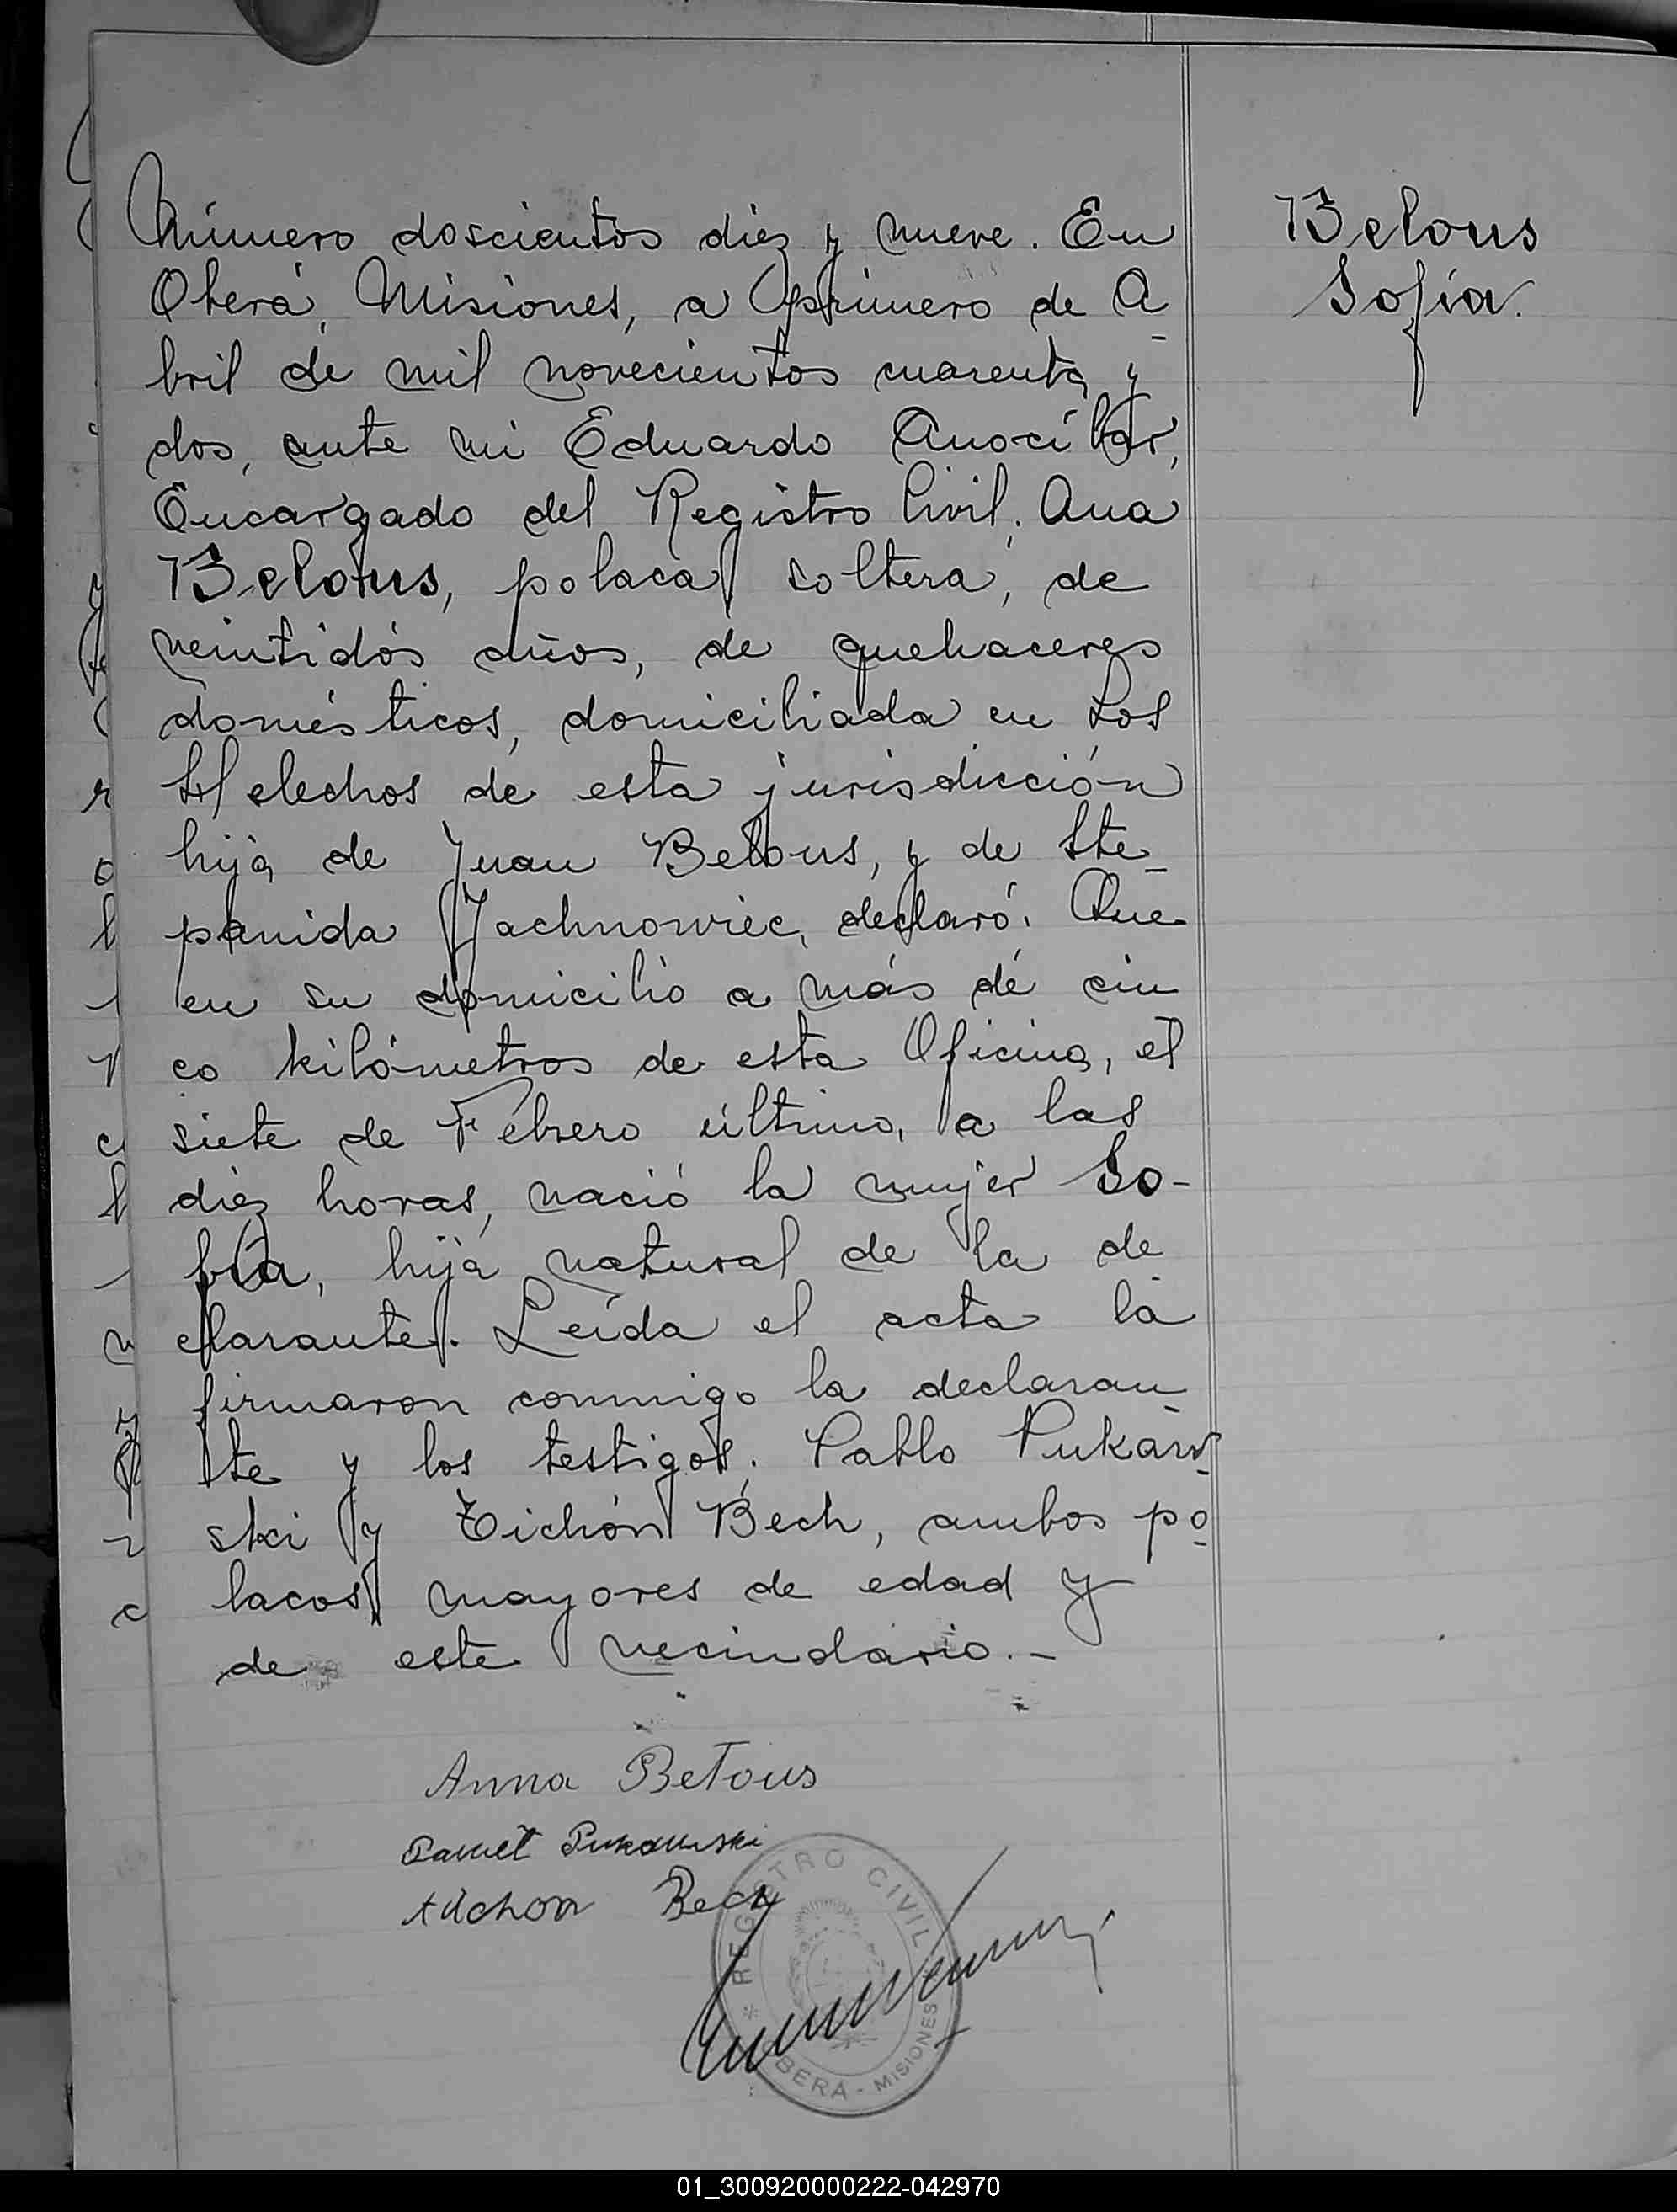 Número doscientos diez y nueve. En
Oberá, Misiones, a primero de A-
bril de mil novecientos cuarenta y
dos, ante mi Eduardo Anocíbar,
Encargado del Registro Civil, Ana
Belous, polaca, soltera, de
veintidós años, de quehaceres
domésticos, domiciliada en Los
Helechos de esta jurisdicción
hija de Juan Belous, y de Ste-
panida Jachnowiec, declaró: Que
en su domicilio a más de cin
co kilómetros de esta Oficina, el
siete de Febrero último, a las
diez horas, nació la mujer So-
fía, hija natural de la de-
clarante. Leída el acta la
firmaron conmigo la declaran-
te y los testigos: Pablo Pukaw-
ski y Tichón Bech, ambos po-
lacos, mayores de edad y
de este vecindario.-
Belous
Sofía.
Anna Bełous
Paweł Pukawski
Bech
REGISTRO CIVIL
OBERA - MISIONES
01_300920000222-042970